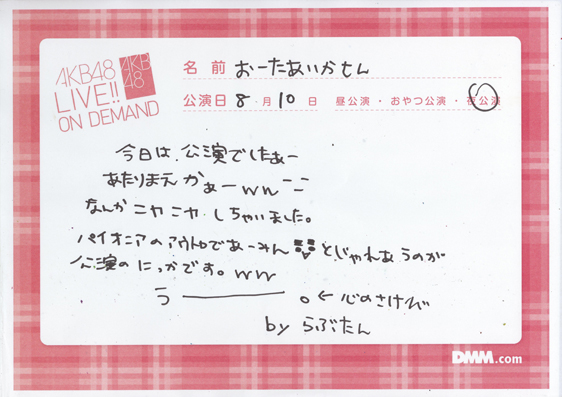 AKB48
LIVE!!
ON DEMAND
AKB
48
名前 おーたあいかセん
公演日 8 月 10 日 昼公演・おやつ公演・夜公演
今日は、公演でしたぁー
あたりまえかぁーwwー
なんかニヤニヤしちゃいました。
パイオニアのアウトロであーみんとじゃれあうのが
公演のにっかです。ww
う────。←心のさけび
by らぶたん
DMM.com